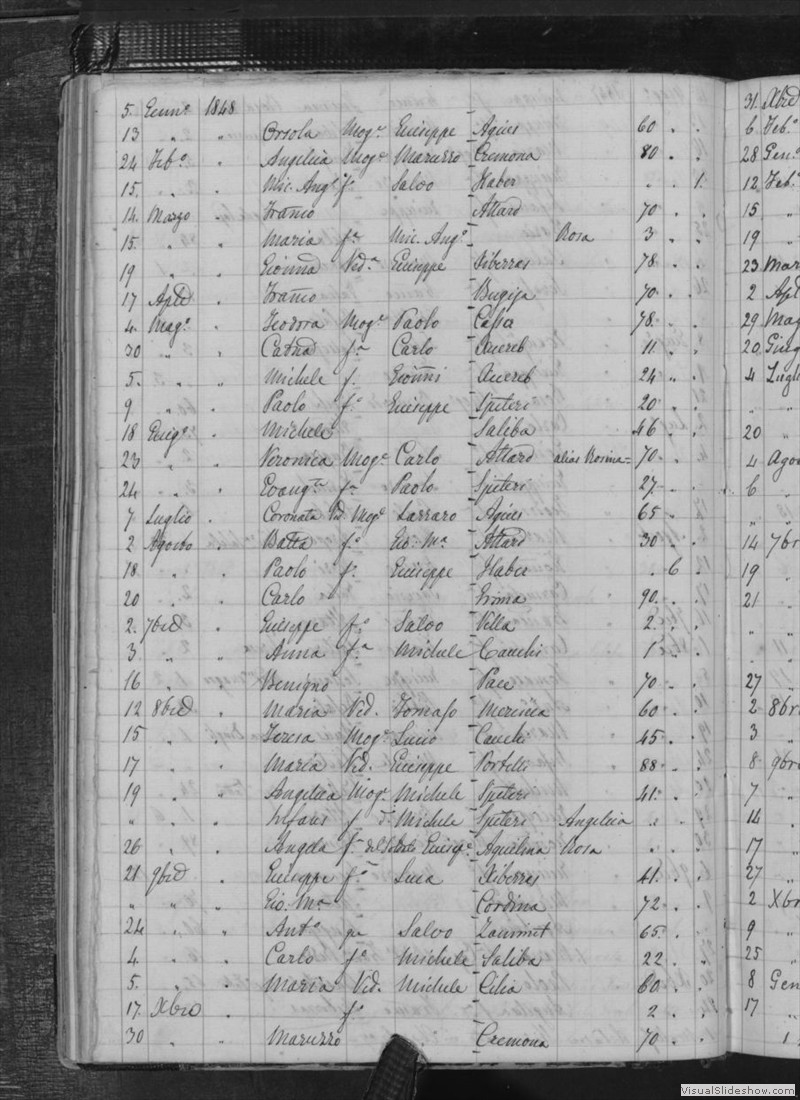 5. Genn.o 1848
13 " " Orsola Mog.e Giuseppe Agius 60 . .
24 Feb.o . Angelica Mog.e Maruzzo Cremona 80 . .
15. " . Mic. Ang.o f.o Salvo Haber . . 1.
14. Marzo . Franco Attard 70 . .
15. " . Maria f.a Mic. Ang.o Rosa 3 . .
19 " . Gionna Ved.a Giuseppe Xiberras 78 . .
17 Aple . Franco Bugeja 70 . .
4. Mag.o . Teodora Mog.e Paolo Cassa 78 . .
30 " . f.a Carlo Aucreb 11 . .
5. " " Michele f. Gionni Aucreb 24 " .
9 " . Paolo f.o Giuseppe Spiteri 20 . .
18 Giug.o . Michele Saliba 46 . .
23 " . Veronica Mog.e Carlo Attard alias Rosina 70 . .
24 " . Evang.ta f.a Paolo Spiteri 27 . .
7 Luglio . Coronata Ved Mog.e Lazzaro Agius 65 . .
2 Agosto . Batta f.o Gio. Ma. Attard 30 . .
18 " " Paolo f.o Giuseppe Haber . 6 .
20 " " Carlo Grima 90 . .
2. 7bre " Giuseppe f.o Salvo Villa 2 . .
3 " " Anna f.a Michele Cauchi 1 . .
16 " . Benigno Pace 70 . .
12 8bre " Maria Ved. Tomaso 60 . .
15 " " Teresa Mog.e Lucio Cauchi 45 . .
17 " . Maria Ved. Giuseppe Portelli 88 . .
19 " " Angelica Mog.e Michele Spiteri 41 . .
" " . Infans f. d. Michele Spiteri Angelica . .
26 " . Angela f.a Giusep.e Aquilina Rosa . .
21 9bre . Giuseppe f.o Luca Xiberras 41 . .
" " " Gio. Ma. Cordina 72 . .
24 " " Ant.o qu Salvo Zammit 65 . .
4. " . Carlo f.o Michele Saliba 22 . .
5. " . Maria Ved. Michele Cilia 60 . .
17. Xbre . f.o 2 . .
30 " " Maruzzo Cremona 70 . .
31. Xbre
6 Feb.o
28 Gen.o
12 Feb.o
15 "
19 "
23 Mar
2 Apl
29 Mag
20 Giug
4 Lugl
" "
20 "
4 Agos
6 "
" "
14 7br
19 "
21 "
" "
" "
27 "
2 8br
3 "
8 9br
7 "
14 "
17 "
27 "
2 Xbr
9 "
25 "
8 Gen
17 "
VisualSlideshow.com